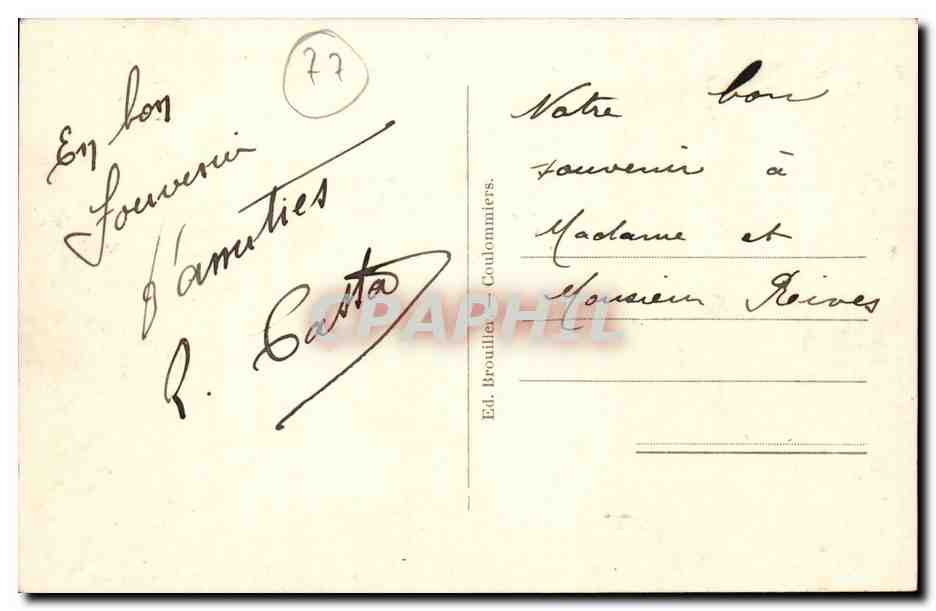 77
En bon
souvenir
d'amitiés
R. Casta
Ed. Brouillet - Coulommiers.
Notre bon
souvenir à
Madame et
Monsieur Reives
CPAPHIL